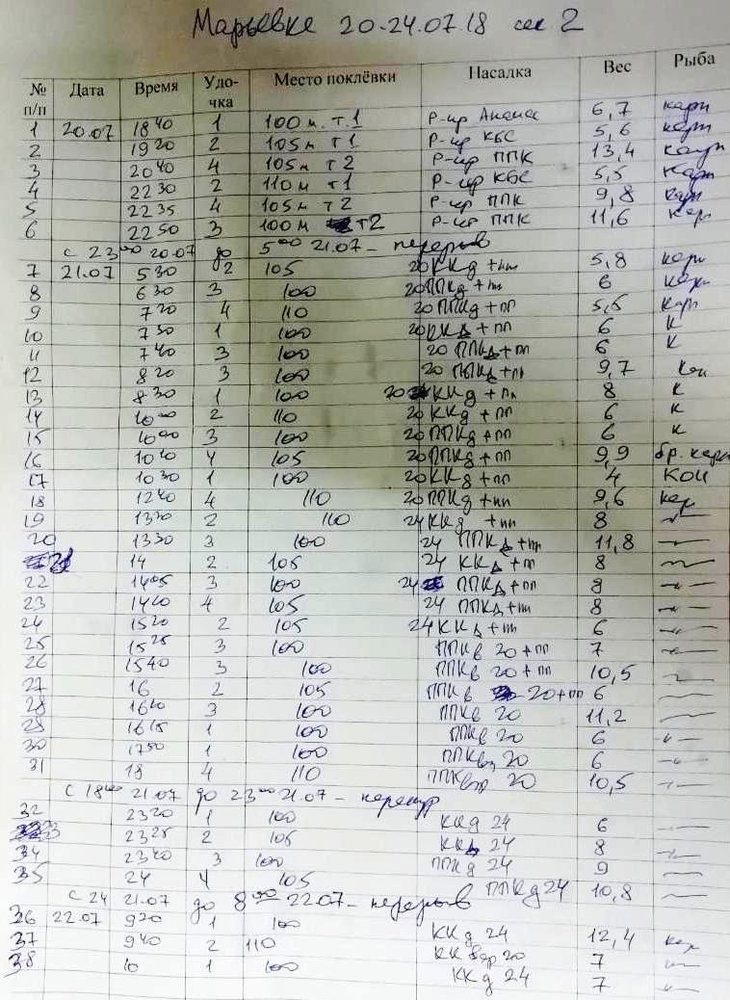 Марьевке 20-24.07.18 сек 2
№ п/п Дата Время Удочка Место поклёвки Насадка Вес Рыба
1 20.07 18 40 1 100 м. т.1 Р-ир Анана 6,7 карп
2 19 20 2 105 м т1 Р-ир КБС 5,6 карп
3 20 40 4 105 м т2 Р-ир ППК 13,4 карп
4 22 30 2 110 м т1 Р-ир КБС 5,5 карп
5 22 35 4 105 м т2 Р-ир ППК 9,8 карп
6 22 50 3 100 м т2 Р-ир ППК 11,6 кар
с 23 00 20.07 до 5 00 21.07 - перерыв
7 21.07 5 30 2 105 20 ККд + пп 5,8 карп
8 6 30 3 100 20 ППКд + пп 6 карп
9 7 20 4 110 20 ППКд + пп 5,5 карп
10 7 30 1 100 20 ККд + пп 6 К
11 7 40 3 100 20 ППКд + пп 6 К
12 8 20 3 100 20 ППКд + пп 9,7 Кои
13 8 30 1 100 20 ККд + пп 8 К
14 10 00 2 110 20 ККд + пп 6 К
15 10 00 3 100 20 ППКд + пп 6 К
16 10 10 4 105 20 ППКд + пп 9,9 бр. карп
17 10 30 1 100 20 ККд + пп 4 КОИ
18 12 40 4 110 20 ППКд + пп 9,6 кар
19 13 20 2 110 24 ККд + пп 8
20 13 30 3 100 24 ППКд + пп 11,8 -"-
21 14 2 105 24 ККд + пп 8
22 14 05 3 100 24 ППКд + пп 8 -"-
23 14 20 4 105 24 ППКд + пп 8 -"-
24 15 20 2 105 24 ККд + пп 6 -"-
25 15 25 3 100 ППКв 20 + пп 7 -"-
26 15 40 3 100 ППКв 20 + пп 10,5
27 16 2 105 ППКв 20 + пп 6
28 16 10 3 100 ППКв 20 11,2
29 16 15 1 100 ППКв 20 6 -"-
30 17 50 1 100 ППКв 20 6 -"-
31 18 4 110 ППКвар 20 10,5 -"-
С 18 00 21.07 до 23 00 21.07 - перекур
32 23 20 1 100 ККд 24 6
33 23 25 2 105 ККд 24 8 -"-
34 23 40 3 100 ППКд 24 9
35 24 4 105 ППКд 24 10,8
С 24 21.07 до 8 00 22.07 - перерыв
36 22.07 9 20 1 100 ККд 24 12,4 кар
37 9 40 2 110 КК вар 20 7 -"-
38 10 1 100 ККд 24 7 -"-